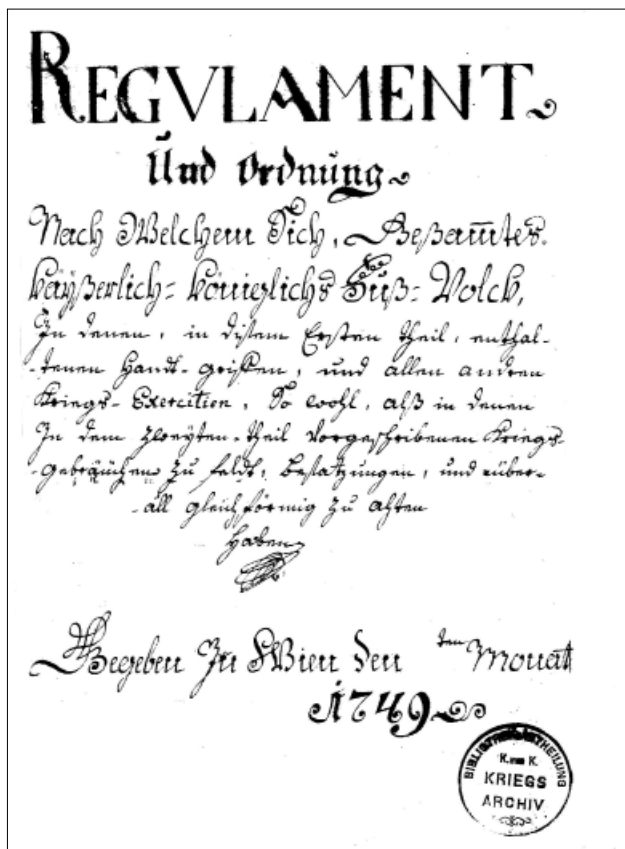 REGVLAMENT
Und Ordnung
Nach Welchem Sich, Gesam̅tes
Kaÿßerlich-Königlichs Fuß-Volck,
In denen, in disem Ersten Theil, enthal-
-tenen Handt-griffen, und allen andren
Kriegs-Exercitien, So wohl, alß in denen
In dem Zweyten-Theil Vorgeschribenen Kriegs-
-gebräuchen zu feldt, besatzungen, und über-
-all gleichförmig zu
haben
Gegeben In Wien den ten Monatt
1749
BIBLIOTHEKS ABTHEILUNG
K. UND K.
KRIEGS
ARCHIV